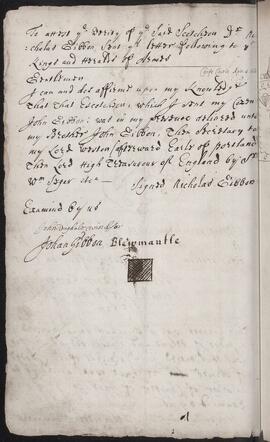 To attest ye verity of ye said Scotcheon Dr Ni
cholas Gibbon sent ye letter following to ye
Kings and Heralds of Armes
Gentlemen
I can and do affirme upon my Knowledge
That that Escotcheon which I sent my Cozen
John Gibbon: was in my presence delivered unto
my Brother John Gibbon. Then Secretary to
my Lord Weston (afterward Earle of portland)
Then Lord High Treasurour of England by Sr
Wm Seger etc — Signed Nicholas Gibbon
Examind by us
John Gibbon Blewmantle